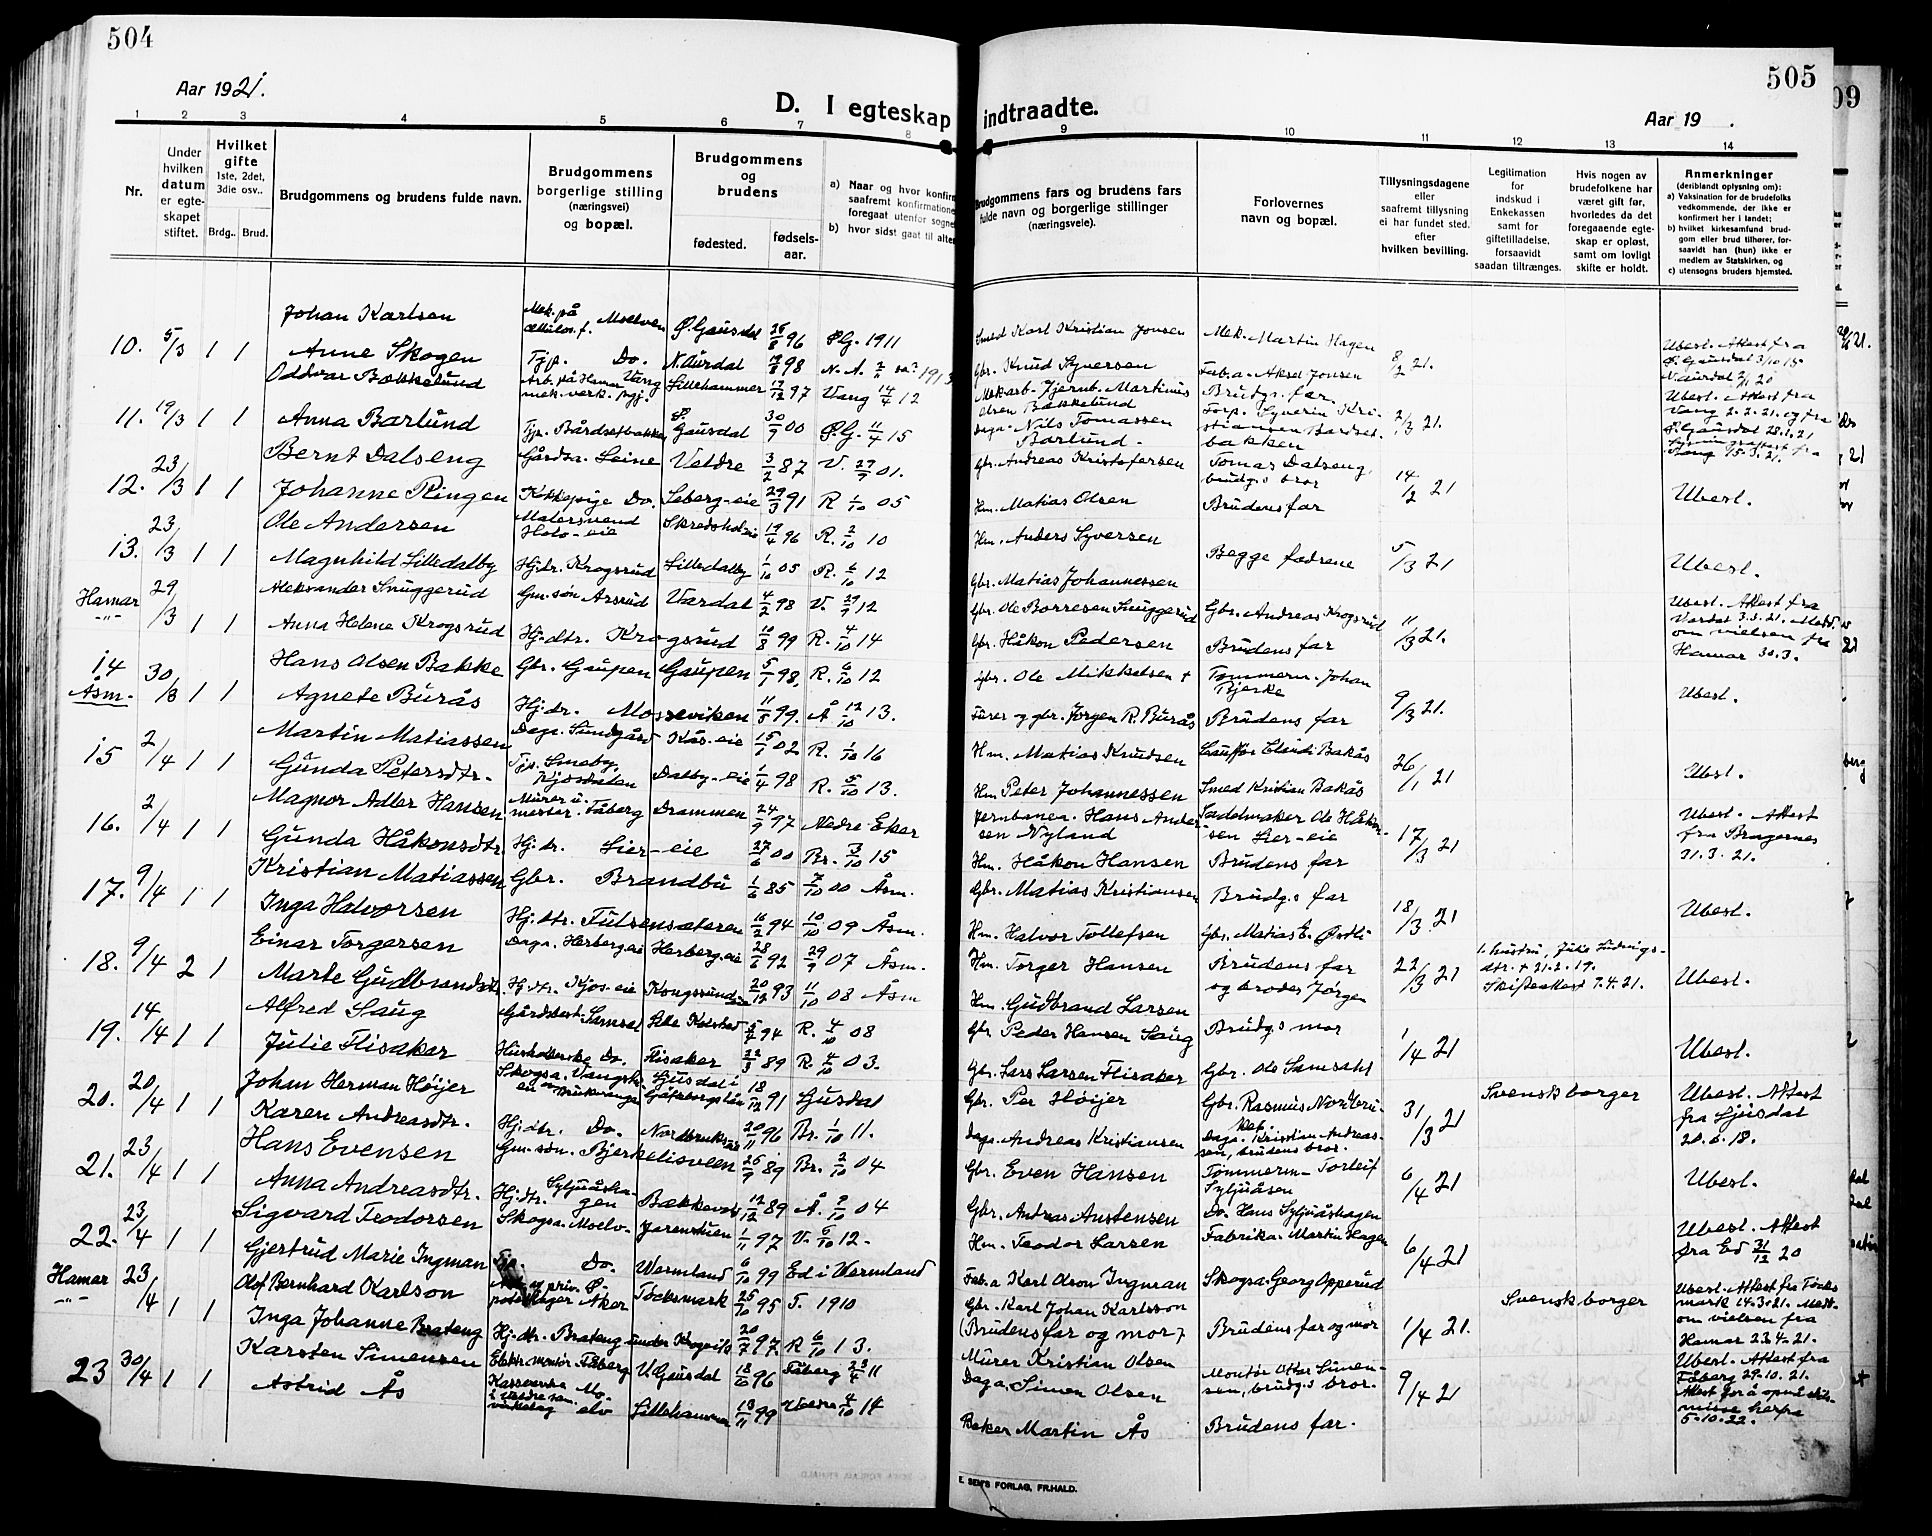 504
Aar 1921.
D. I egteskap
1 2 3 4 5 6 7 8
Nr.
Under hvilken datum er egteskapet stiftet.
Hvilket gifte 1ste, 2det, 3die osv..
Brdg.. Brud.
Brudgommens og brudens fulde navn.
Brudgommens borgerlige stilling (næringsvei) og bopæl.
Brudgommens og brudens
fødested. fødsels-aar.
a) Naar og hvor konfirm
saafremt konfirmatione
foregaat utenfor sogne
b) hvor sidst gaat til alter
10. 5/3 1 1 Johan Karlsen Mek. på Moelven Ø. Gausdal 96 Ø.G. 1911
Anne Skogen Tjp. Do. N. Aurdal 98 N. A.
11. 19/3 1 1 Oddvar Bækkelund Arb. på Hamar mek. verk. Vang Lillehammer 17/12 97 Vang 14/4 12
Anna Barlund Tjp. Bårdsetbakken Ø. Gausdal 30/9 00 Ø.G. 11/4 15
12. 23/3 1 1 Bernt Dalseng Gårdsa. Leine Veldre 3/2 87 V. 29/9 01.
Johanne Ringen Kokkepige Do. Seberg-eie 29/3 91 R 1/10 05
13. 23/3 1 1 Ole Andersen Malersvend Holo-eie Skredshol-eie 19/4 96 R. 2/10 10
Magnhild Lilledalby Hj.dr. Krogsrud Lilledalby 1/10 05 R. 6/10 12
Hamar 29/3 1 1 Aleksander Snuggerud Gm. søn Arsrud Vardal 4/2 98 V. 29/9 12
Anna Helene Krogsrud Hj.dtr. Krogsrud 10/8 99 R. 4/10 14
14 Åsm. 30/3 1 1 Hans Olsen Bakke Gbr. Gaupen Gaupen 5/1 98, R. 6/10 12
Agnete Burås Hj.dr. Mosseviken 11/5 99. Å 12/10 13.
15 2/4 1 1 Martin Matiassen Daga. Sundgård Kås-eie 15/7 02 R. 1/10 16
Gunda Petersdtr. Tjp. Smeby, Dalby-eie 1/4 98 R. 5/10 13.
16. 2/4 1 1 Magnor Adler Hansen Murer u. mester. Fåberg Drammen 24/9 97 Nedre Eker
Gunda Håkonsdtr Hj.dr. Lier-eie 27/6 00 Br. 3/10 15
17. 9/4 1 1 Kristian Matiassen Gbr. Brandbu 1/6 85 7/10 00 Åsm.
Inga Halvorsen Hj.dtr. Fulsensæteren 16/2 94 10/10 09 Åsm.
18. 9/4 2 1 Einar Torgersen Daga. Herberg eie Herberg-eie 28/6 92 29/9 07 Åsm.
Marte Gudbrandsdtr. Hj.dtr. Kjos-eie 20/12 93 11/10 08 Åsm
19. 14/4 1 1 Alfred Saug Gårdsbest. Samsal Lille Kolstad 5/4 94 R. 4/10 08
Julie Flisaker Husholderske Do. Flisaker 22/3 89 R. 4/10 03.
20. 20/4 1 1 Johan Herman Höijer Skogsa. Ljusdal i Gäfleborgslän 18/12 91 Ljusdal
Karen Andreasdtr. Hj.dtr. Do. 20/11 96 Br. 1/10 11.
21. 23/4 1 1 Hans Evensen Gm. søn. Bjerkelisveen 26/9 89 Br. 2/10 04
Anna Andreasdtr. Hj.dtr. Syljuåsha-gen Bækkevol 12/12 89 Å. 9/10 04
22. 23/4 1 1 Sigvard Teodorsen Skogsa. Moelv. Jarenstuen 1/11 97 V. 6/10 12.
Gjertrud Marie Ingman Tjp. Do. Wermland 6/10 99 Ed i Vermland
Hamar 23/4 1 1 Olof Bernhard Karlson Aker Töcksmark 25/10 95 T. 1910
Inga Johanne Brateng Hj.dtr. Brateng under 20/7 97 R 6/10 13.
23 30/4 1 1 Karsten Simensen Elektr. montør Fåberg V. Gausdal 18/10 96 Fåberg 23/4 11
Astrid Ås Kasserske Mo-elv Lillehammer 13/11 99 Veldre 4/10 14
505
indtraadte.
Aar 19 .
9 10 11 12 13 14
Brudgommens fars og brudens fars fulde navn og borgerlige stillinger (næringsveie).
Forlovernes navn og bopæl.
Tillysningsdagene eller saafremt tillysning ei har fundet sted. efter hvilken bevilling.
Legitimation for indskud i Enkekassen samt for giftetilladelse, forsaavidt saadan tiltrænges.
Hvis nogen av brudefolkene har været gift før, hvorledes da det foregaaende egteskap er opløst, samt om lovligt skifte er holdt.
Anmerkninger (deriblandt oplysning om):
a) Vaksination for de brudefolks vedkommende, der ikke er konfirmert her i landet;
b) hvilket kirkesamfund brudgom eller brud tilhører, forsaavidt han (hun) ikke er medlem av Statskirken, og
c) utensogns bruders hjemsted.
Smed Karl Kristian Jonsen Mek. Martin Hagen 8/2 21. Ubest. Attest fra Ø. Gausdal 3/10 15
Gbr. Knud Syversen Fab.a. Aksel Jonsen N. Aurdal 2/1 20
Mekarb. Hjernb. Martinus Olsen Bækkelund Brudgs. far. 2/3 21. Ubest. Attest fra Vang 2.2.21. og fra Ø. Gausdal 28.2.21
Daga. Nils Tomassen Barlund. Torp. Syverin Kristiansen Bardset-bakken
Gbr. Andreas Kristofersen Tomas Dalseng, brudg.s bror 14/2 21 Ubest.
Hm. Matias Olsen Brudens far
Hm. Anders Syversen Begge fædrene 5/3 21 Ubest.
Gbr. Matias Johannessen
Gbr. Ole Borresen Snuggerud Gbr. Andreas Krogsrud 11/3 21. Ubest. Attest fra Vardal 3.3.21. Medd. om vielsen fra Hamar 30.3.
Gbr. Håkon Pedersen Brudens far
Gbr. Ole Mikkelsen + Tømmerm. Johan Bjerke 9/3 21. Ubest.
Fører og gbr. Jørgen R. Burås Brudens far
Hm. Matias Knudsen Bakås 26/1 21 Ubest.
Hm Peter Johannessen Smed Kristian Bakås
Jernbanea. Hans Andersen Nyland Sadelmaker Ole Håkonsen Lier-eie 17/3 21 Ubest. Attest fra Bragernes 31.3.21.
Hm. Håkon Hansen Brudens far
Gbr. Matias Kristiansen Brudg.s far 18/3 21 Ubest.
Hm. Halvor Tollefsen Gbr. Matias E. Østli
Hm. Torger Hansen Brudens far og broder Jørgen 22/3 21 1. hustru, Julie Ludvigsdtr. + 21.2.19. Skifteattest 7.4.21. Ubest.
Hm. Gudbrand Larsen
Gbr Peder Hansen Saug Brudg.s mor 1/4 21 Ubest.
Gbr. Lars Larsen Flisaker Gbr. Ole Samsahl
Gbr. Per Höijer Gbr. Rasmus Nordbru- 31/3 21 Svensk borger Ubest. Attest fra Ljusdal 20.6.18.
Daga. Andreas Kristiansen Daga. Kristian Andreassen, brudens bror.
Gbr. Even Hansen Tømmerm. Torleif Syljuåsen 6/4 21 Ubest.
Gbr. Andreas Austensen Do. Hans Syljuåshagen
Hm. Teodor Larsen Fabrika. Martin Hagen 6/4 21 Ubest. Attest fra Ed 31/12 20
Fab.a Karl Olson Ingman Skogsa. Georg Opperud
Gbr. Karl Johan Karlsson Brudens far og mor 1/4 21. Svensk borger Ubest. Attest fra Töcksmark 14.3.21. Medd. om vielsen fra Hamar 23.4.21.
(Brudens far og mor)
Murer Kristian Olsen
Daga. Simen Olsen Montør Otter Simensen, brudg.s bror. 9/4 21 Ubest. Attest fra Fåberg 29.10.21.
Baker Martin Ås Brudens far. 5.10.22.
E. SEM'S FORLAG, FR.HALD.
09